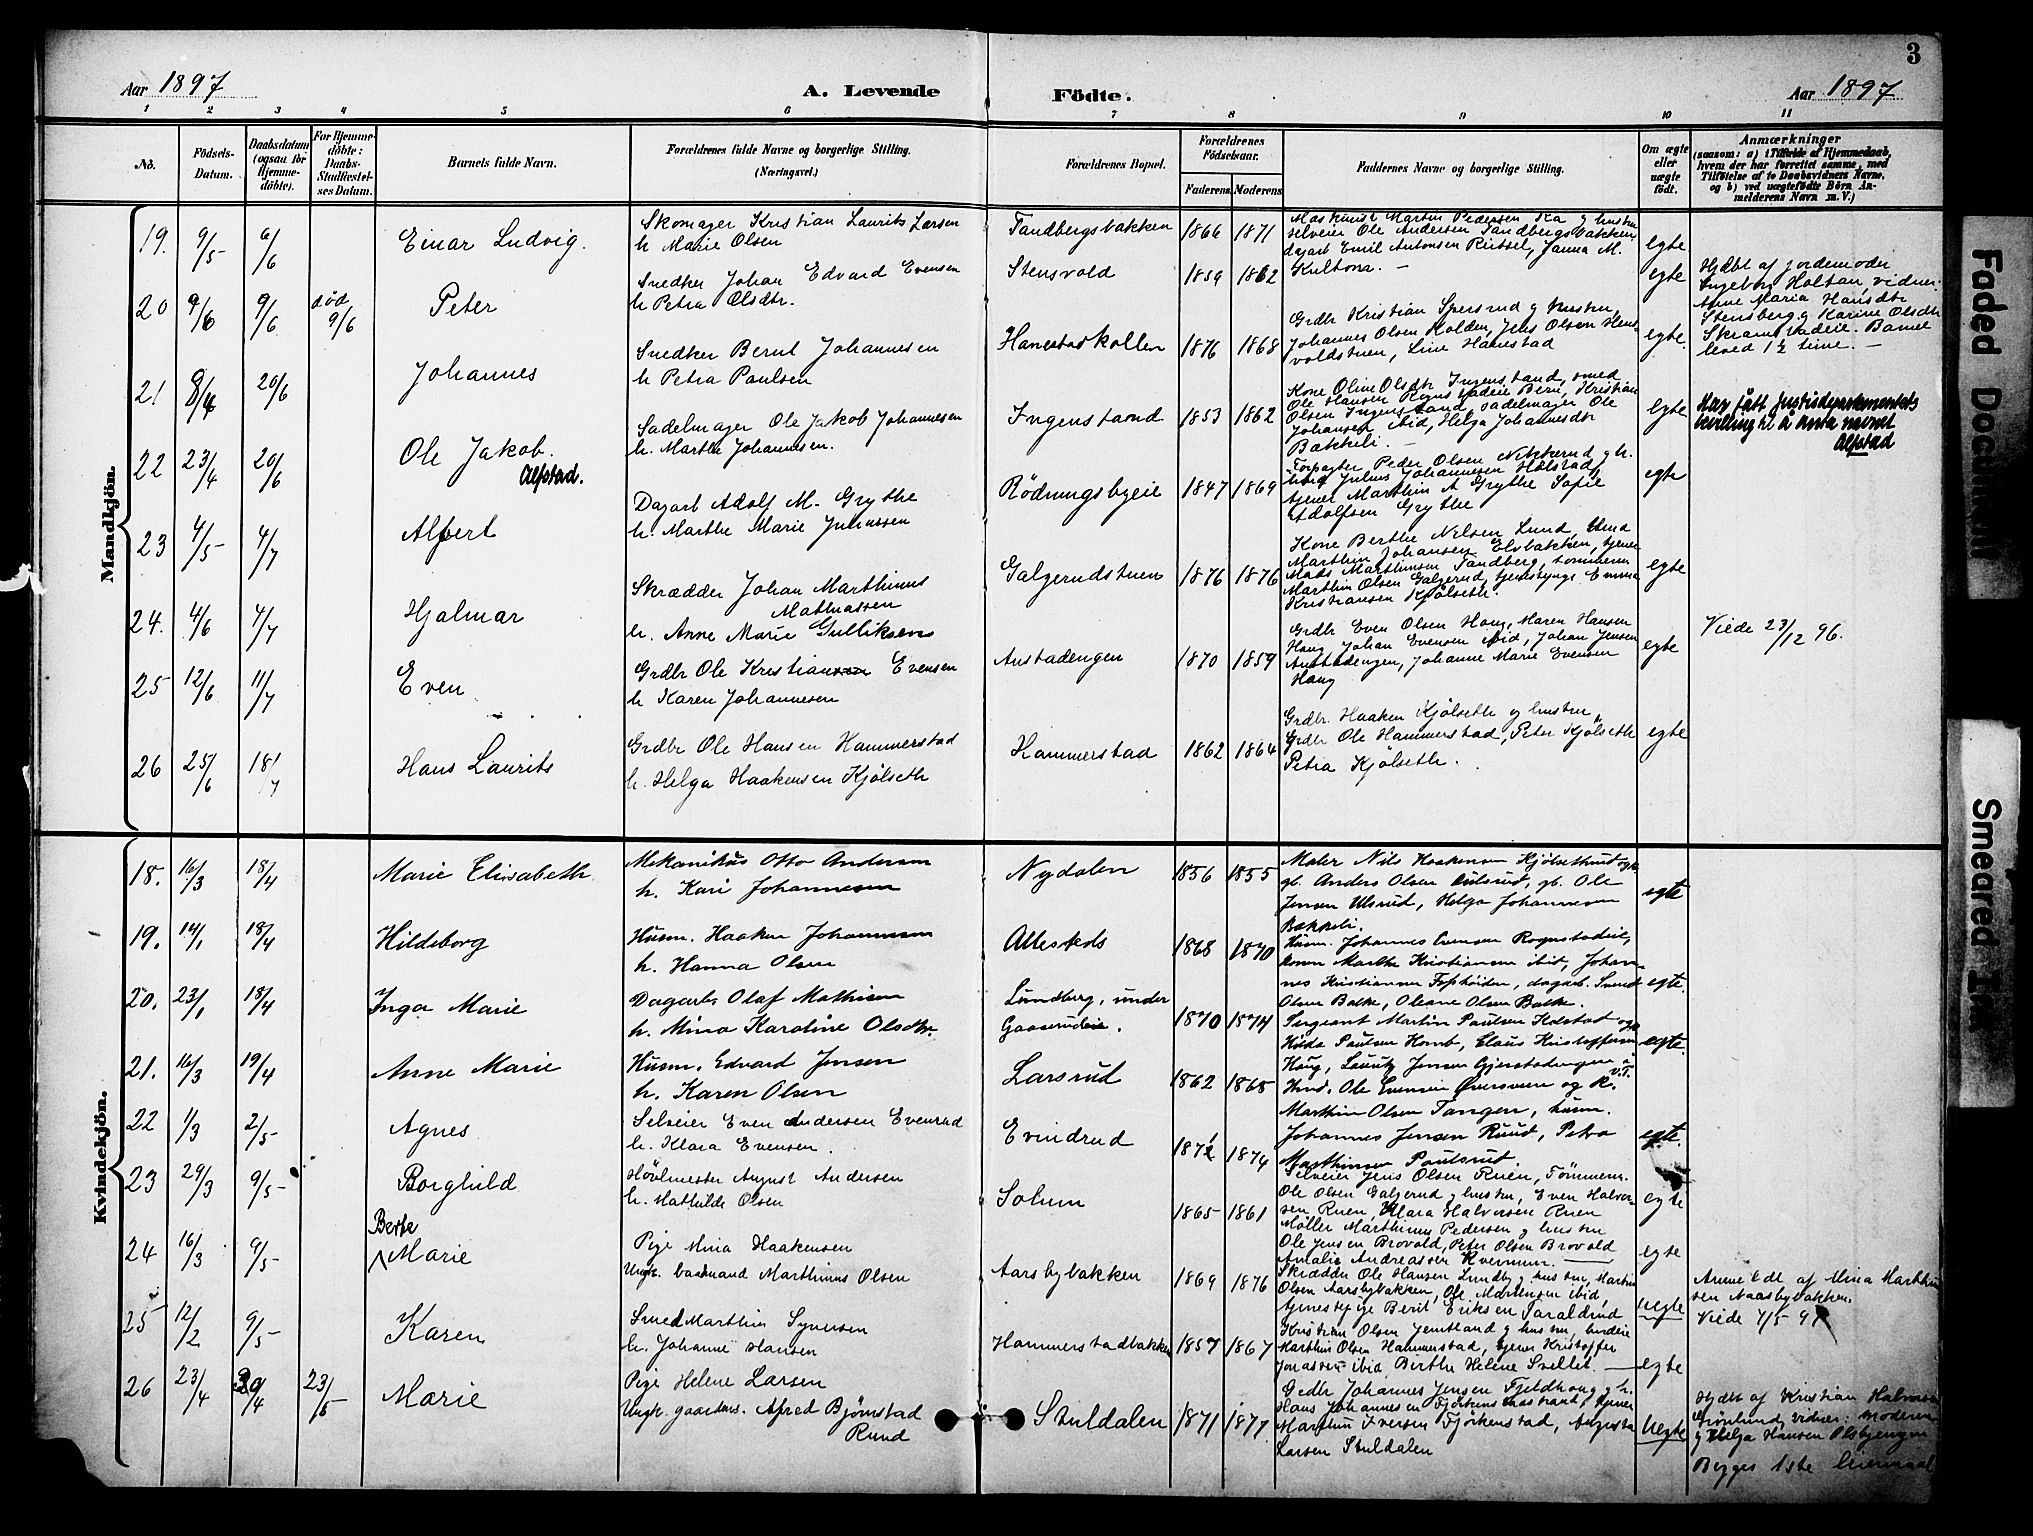 3
Aar 1897
A. Levende Födte.
Aar 1897
1 2 3 4 5 6 7 8 9 10 11
No.
Födsels-
Datum.
Daabsdatum
(ogsaa for
Hjemme-
döbte).
For Hjemme-
döbte:
Daabs-
Stadfæstel-
ses Datum.
Barnets fulde Navn.
Forældrenes fulde Navne og borgerlige Stilling.
(Næringsvei.)
Forældrenes Bopæl.
Forældrenes
Födselsaar.
Faderens Moderens
Faddernes Navne og borgerlige Stilling.
Om ægte
eller
uægte
født.
Anmærkninger
(saasom: a) i Tilfælde af Hjemmedaab,
hvem der har forrettet samme, med
Tilföielse af to Daabsvidners Navne,
og b) ved uægtefödte Börn An-
melderens Navn m. V.)
Mandkjön.
19. 9/5 6/6 Einar Ludvig.
Skomager Kristian Laurits Larsen
h. Marie Olsen
Tandbergsbakken 1866 1871
selveier Ole Andersen Tandbergsbakken,
egte
20 9/6 9/6 død 9/6 Peter
Snedker Johan Edvard Evensen
h. Petra Olsdtr.
Stensvold 1859 1862
egte
Hjdbt af jordemoder
Ingeborg Holtan, vidner
Anne Maria Hansdtr
Stensberg g Karine Olsdtr
leved 1½ time. —
21 8/4 20/6 Johannes
Snedker Bernt Johannesen
h. Petra Paulsen
Hanestadkollen 1876 1868
Grdbr Kristian Spersrud g hustru,
Johannes Olsen Kolden, Jens Olsen Hens-
voldstuen, Line Hanestad
egte.
22 23/4 20/6 Ole Jakob.
Alfstad.
Sadelmager Ole Jakob Johannesen
h. Marthe Johannesen.
Ingenstand 1853 1862
Kone Oline Olsdtr Ingenstand, smed
Olsen Ingenstand, sadelmager Ole
Johansen ibid, Helga Johannesdtr
Bakkeli. —
egte
Har fått Justisdepartementets
bevilling til å anta navnet
Alfstad
23 4/5 4/7 Alfert
Dagarb Adolf M. Grythe
h. Marthe Marie Juliussen
Rødningsbyeie 1847 1869
Forpagter Peder Olsen Nikkerud g h.
tjener Marthin A Grythe Sofie
Adolfsen Grythe
egte
24. 4/6 4/7 Hjalmar
Skrædder Johan Marthinus
Mathiassen
h. Anne Marie Gulliksen
Galgerudstuen 1876 1876
Kone Berthe Nielsen Lund,
Marthin Johansen Elvbakken, tjener
Mads Marthinsen Tandberg, tømmerm
Marthin Olsen Galgerud, tjenestpige Emma
Kristiansen Kjølseth.
egte
Viede 23/12 96.
25 12/6 11/7 Even
Grdbr Ole Kristian Evensen
h. Karen Johannesen
Anstadengen 1870 1859
Grdbr Even Olsen Haug, Maren Hansen
Haug Johan Evensen ibid, Johan Jensen
Anstadengen, Johanne Marie Evensen
Haug
egte
26 25/6 18/7 Hans Laurits
Grdbr Ole Hansen Hammerstad
h. Helga Haakensen Kjølseth
Hammerstad 1862 1864
Grdbr. Haaken Kjølseth og hustru,
Grdbr Ole Hammerstad, Peter Kjølseth
Petra Kjølseth.
egte
Kvindekjön.
18. 16/3 18/4 Marie Elisabeth
Mekanikus Otto Andersen
h. Kari Johannesen
Nydalen 1856 1855
Maler Nils Haakensen Kjølsethrud og h
gb. Anders Olsen Ulsrud, gb. Ole
Jensen Ulsrud, Helga Johannesen
Bakkeli.
egte
19. 14/1 18/4 Hildeborg
Husm. Haaken Johannesen
h. Hanna Olsen
Alleskols 1868 1870
Husm. Johannes Evensen Rognstadeie,
konen Marthe Kristiansen ibid, Johan-
nes Kristiansen Fophøiden, dagarb. Svend
Olsen Balke, Oleane Olsen Balke.
egte.
20. 23/1 18/4 Inga Marie
Dagarb. Olaf Mathisen
h. Mina Karoline Olsdtr.
Lundberg, under
Gaaserudeie. 1870 1874
Sergeant Martin Paulsen Kolstad og
Hilda Paulsen Komb, Claus Kristoffersen
egte.
21. 16/3 19/4 Anne Marie
Husm. Edvard Jensen
h. Karen Olsen
Larsrud 1862 1865
Haug, Lauritz Jensen Gjerstadengen
22 1/3 2/5 Agnes
Selveier Even Andersen Evenrud
h. Klara Evensen.
Evindrud 1872 1874
Marthin Olsen Tangen, husm.
Johannes Jensen Ruud, Petra
Marthinsen Paulsrud.
egte.
23 29/3 9/5 Borghild
Høvlmester August Andersen
h. Mathilde Olsen
Solum 1865 1861
Selveier Jens Olsen Ruen, Tømmerm.
Ole Olsen Galgerud g hustru, Even Halvor-
sen Ruen, Klara Halvorsen Ruen
egte
24 16/3 9/5 Berte
Marie
Pige Mina Haakensen
Ungk. baadmand Marthinus Olsen
Aarsbybakken 1869 1876
Møller Marthinus Pedersen g hustru
Ole Jensen Brovold, Peter Olsen Brovold
Amalie Andreassen Kvernum. —
egte
25 12/2 9/5 Karen
Smed Marthin Syversen
h. Johanne Hansen
Hammerstadbakken 1857 1867
Skrædder Ole Hansen Lundby g hustru, Martin
Olsen Aarsbybakken, Ole Mortensen ibid,
tjenestpige Berit Eriksen Jaraldrud
Uegte
Anmeldt af Mina Marthin
sen Aasbybakken.
Viede 7/5 97
26 23/4 30/4 23/5 Marie
Pige Helene Larsen
Ungk. gaardms. Alfred Bjørnstad
Ruud
Stuldalen 1871 1877
Kristian Olsen Jemtland g hustru,
Marthin Olsen Hammerstad, tjener Kristoffer
Jonassen ibid, Birthe Helene Svellet. — egte
Grdbr Johannes Jensen Fjeldhaug g h.
Marthin Iversen Fjørkenstad, Augusta
Larsen Stuldalen
Uegte
Hjdbt af Kristian Halvorsen
Grønlund, vidner: Moderen
g Helga Hansen Olsbyengen
Begges 1ste leiermaal
Faded Document
Smeared Ink